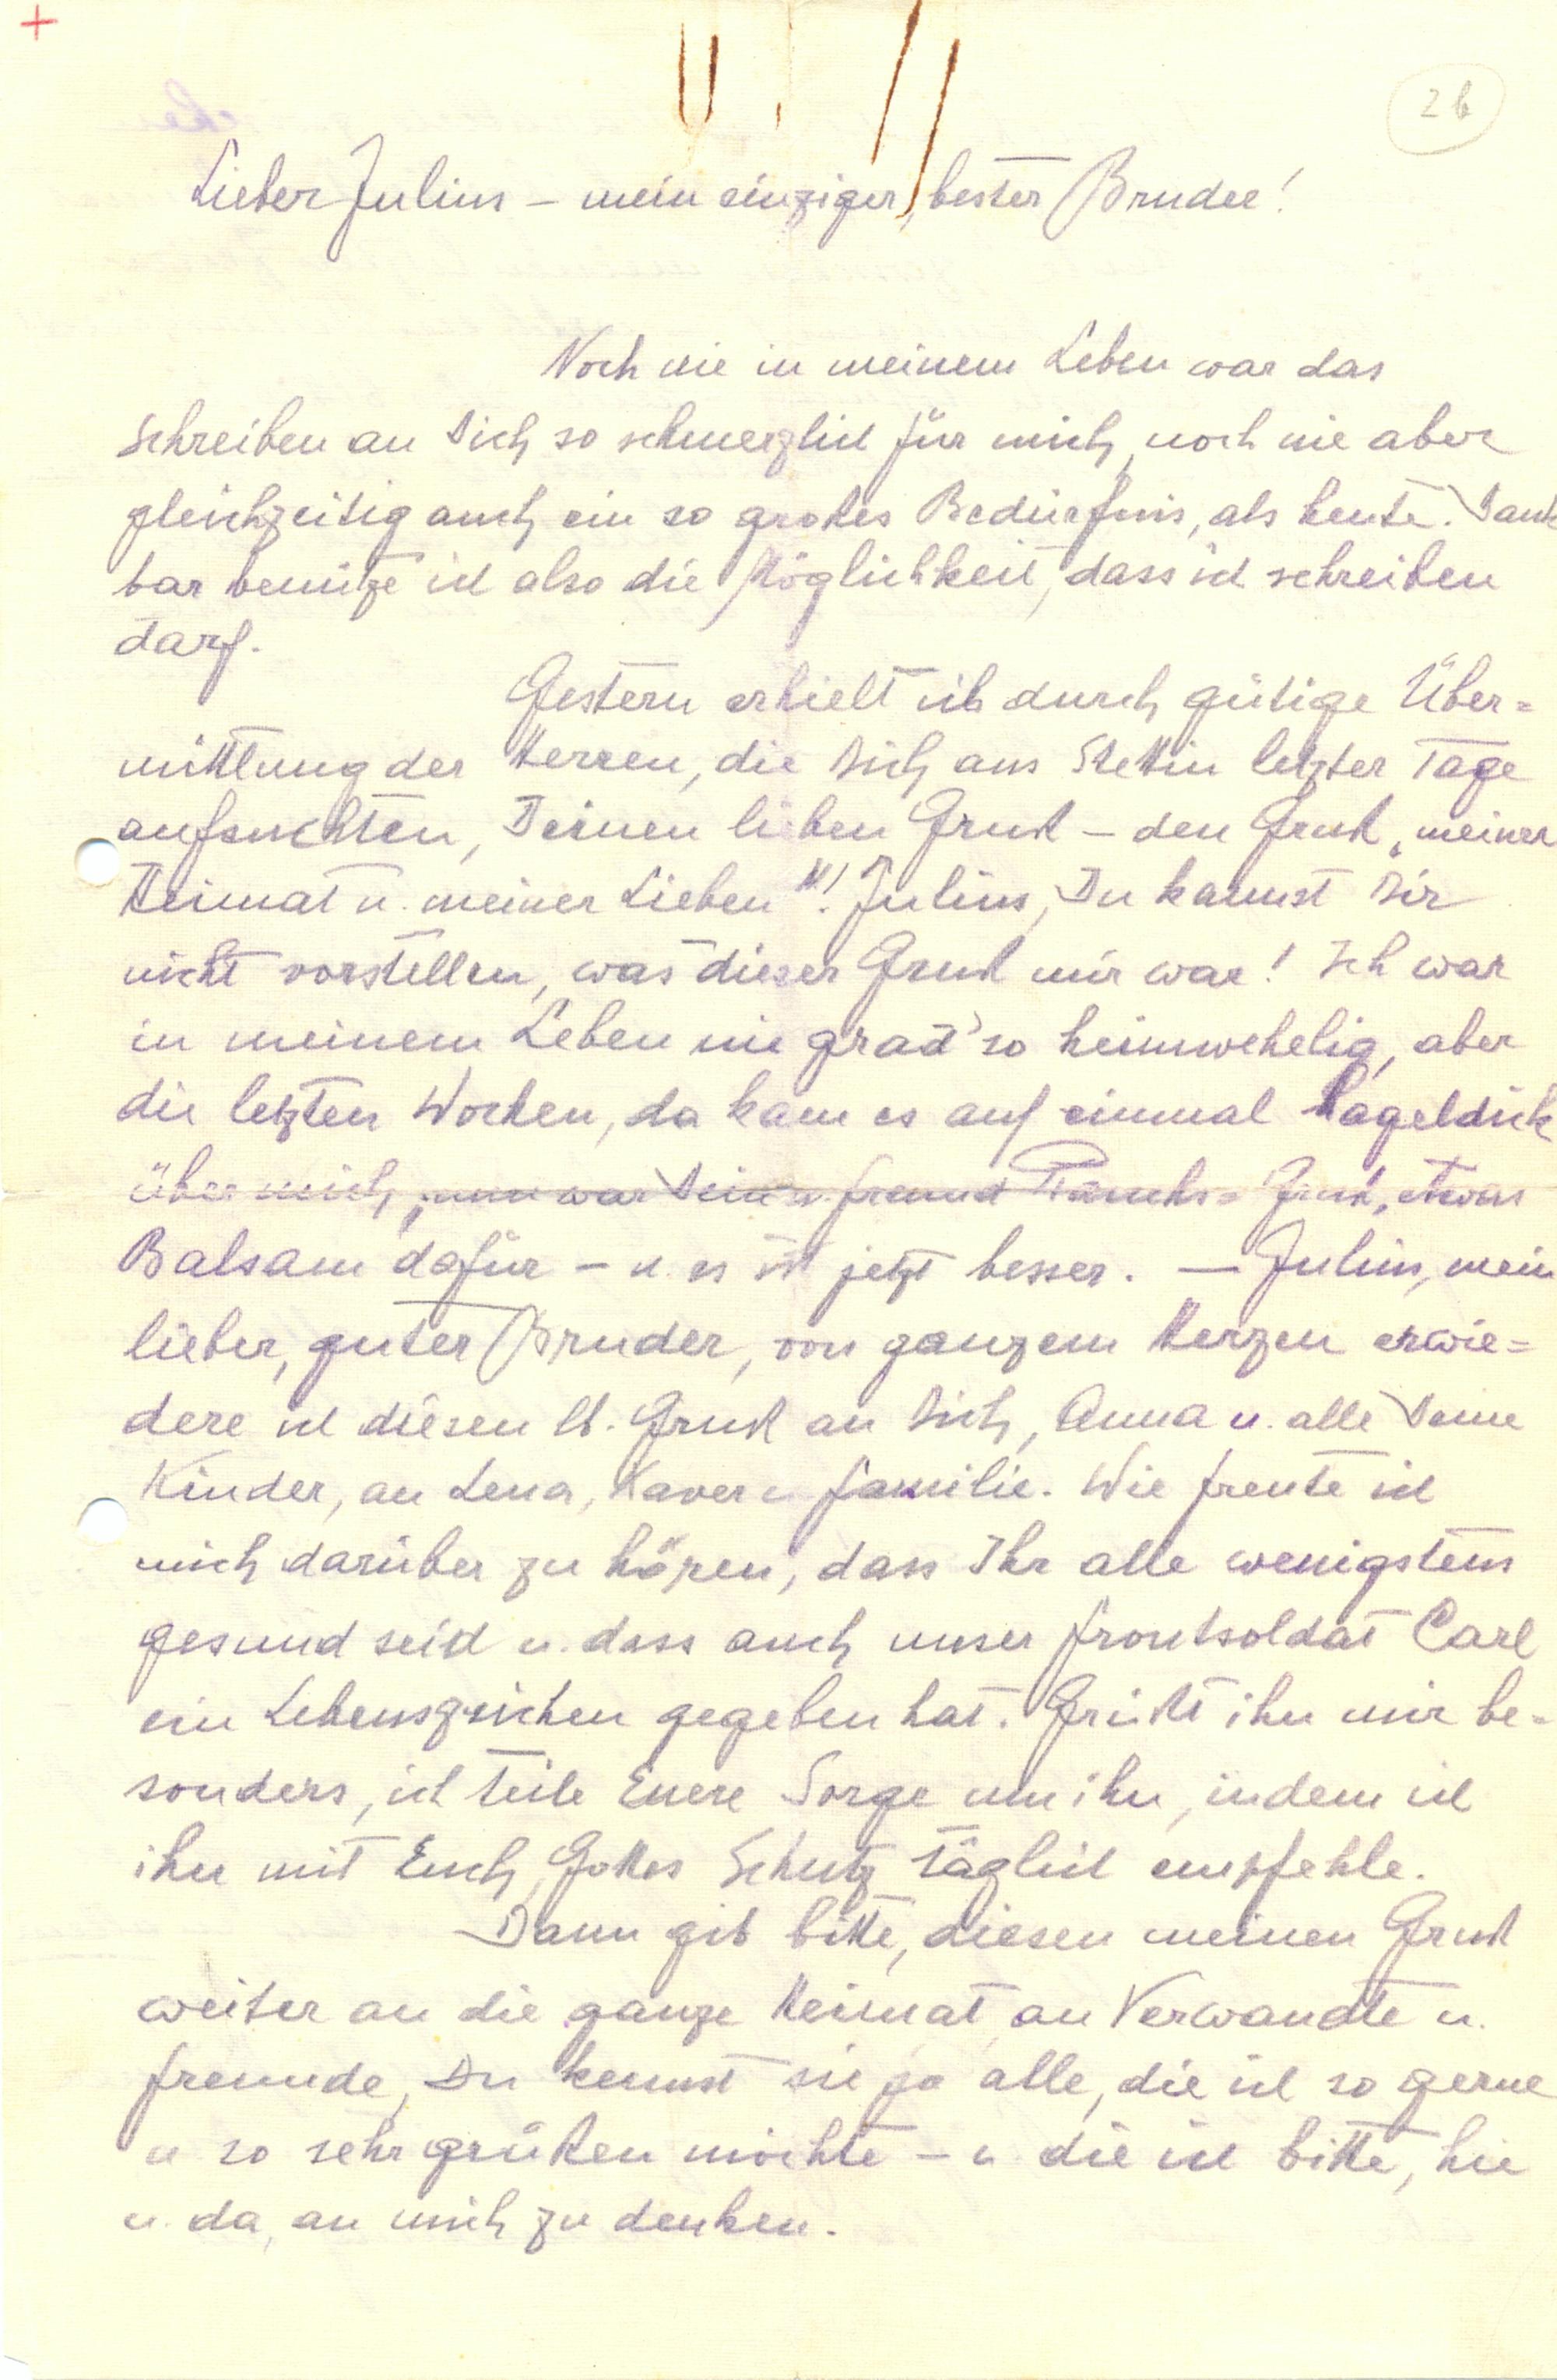 2b
Lieber Julius – mein einziger, bester Bruder!
Noch nie in meinem Leben war das
Schreiben an Dich so schmerzlich für mich, noch nie aber
gleichzeitig auch ein so großes Bedürfnis, als heute. Dank
bar benütze ich also die Möglichkeit, dass ich schreiben
darf.
Gestern erhielt ich durch gütige Über=
mittlung der Herren, die Dich aus Stettin letzter Tage
aufsuchten, Deinen lieben Gruß – den Gruß „meiner
Heimat u. meiner Lieben"! Julius, Du kannst Dir
nicht vorstellen, was dieser Gruß mir war! Ich war
in meinem Leben nie grad' so heimwehelig, aber
die letzten Wochen, da kam es auf einmal hageldick
über mich, nun war Dein u. Freund Gruß, etwas
Balsam dafür – u. es ist jetzt besser. — Julius, mein
lieber, guter Bruder, von ganzem Herzen erwie=
dere ich diesen lb. Gruß an Dich, Anna u. alle Deine
Kinder, an Lena, Xaver u. Familie. Wie freute ich
mich darüber zu hören, dass Ihr alle wenigstens
gesund seid u. dass auch unser Frontsoldat Carl
ein Lebenszeichen gegeben hat. Grüßt ihn mir be=
sonders, ich teile Euere Sorge um ihn, indem ich
ihn mit Euch, Gottes Schutz täglich empfehle.
Dann gib bitte, diesen meinen Gruß
weiter an die ganze Heimat, an Verwandte u.
Freunde, Du kennst sie ja alle, die ich so gerne
u. so sehr grüßen möchte – u. die ich bitte, hie
u. da, an mich zu denken.